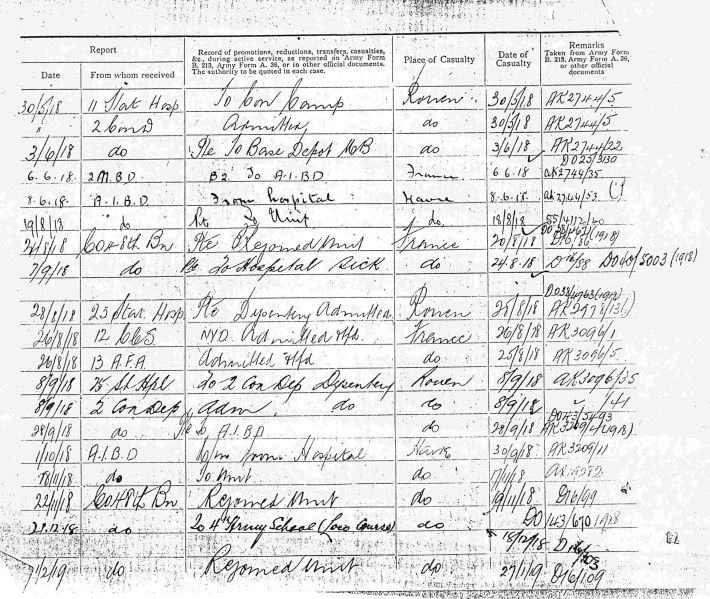 Report
Record of promotions, reductions, transfers, casualties, &c., during active service, as reported on Army Form B. 213, Army Form A. 36, or in other official documents. The authority to be quoted in each case.
Place of Casualty
Date of Casualty
Remarks
Taken from Army Form B. 213, Army Form A. 36, or other official documents
Date From whom received
30/5/18 11 Stat Hosp To Con Camp Rouen 30/5/18 AK2744/5
" 2 Con D Admitted do 30/5/18 AK2744/5
3/6/18 do To Base Depot do 3/6/18 AK2744/22
DO25/3130
6.6.18 2 M.B.D B2 To A.I.B.D France 6.6.18 AK2744/35
8.6.18 A.I.B.D. From hospital Havre 8.6.18 AK2744/53
19/8/18 do To Unit do 18/8/18
CO 48th Bn Rejoined Unit France 20/8/18 D16/86
7/9/18 do To Hospital Sick do 24.8.18 D16/58 5003 (1918)
28/8/18 25 Stat. Hosp. Dysentery Admitted Rouen 28/8/18
26/8/18 12 CCS NYD Admitted & tfd France 26/8/18 AK3096/1
26/8/18 13 A.F.A Admitted & tfd do 25/8/18 AK3066/5
8/9/18 25 St Hpl to 2 Con Dep Dysentery Rouen 8/9/18 AK3096/35
8/9/18 2 Con Dep adm do do 8/9/18 " /41
DO43/5493
28/9/18 do To A.I.B.D do 28/9/18
1/10/18 A.I.B.D from Hospital Havre 30/9/18 AK3209/11
do To Unit do
22/11/18 CO 48th Bn Rejoined Unit do D16/99
28.12.18 do To 4th Army School do DO 143/670 1918
18/12/18
do Rejoined Unit do 27/1/19 D16/109